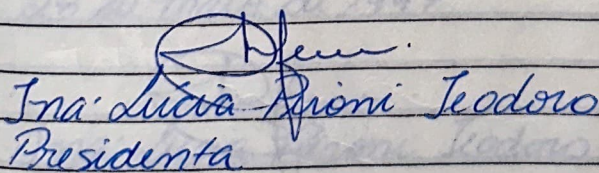 Ina Lúcia Arioni Teodoro
Presidenta